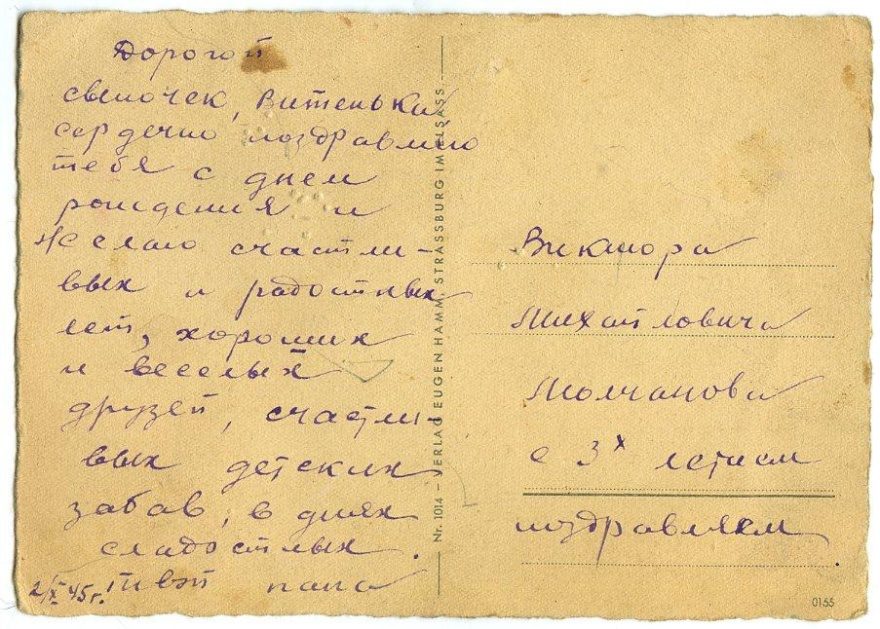 Дорогой
сыночек, Витенька
сердечно поздравляю
тебя с днем
рождения и
желаю счастли-
вых и радостных
лет, хороших
и веселых
друзей, счастли-
вых детских
забав, в днях
сладостных.
Твой папа
2/X 45 г.
Nr. 1014 – VERLAG EUGEN HAMM, STRASSBURG IM ELSASS
Виктора
Михайловича
Молчанова
с 3х летием
поздравляем
0155